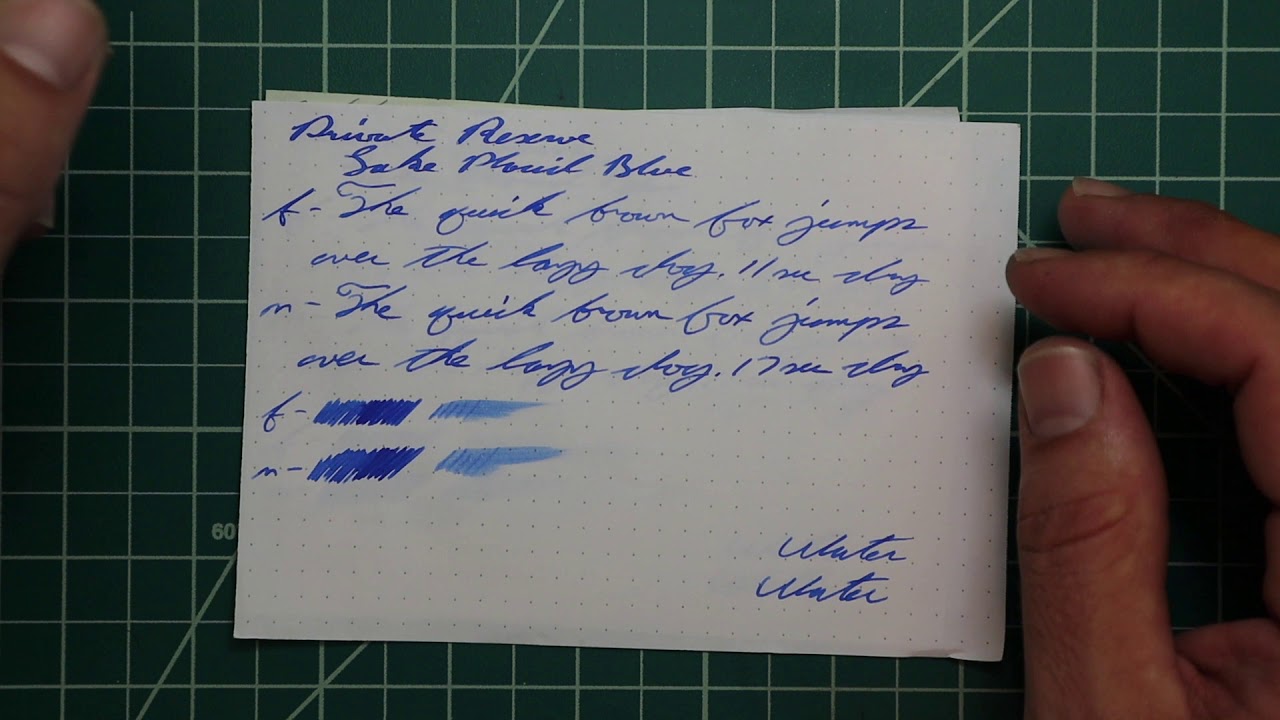 Private Reserve
Lake Placid Blue
f - The quick brown fox jumps
over the lazy dog. 11 sec dry
m - The quick brown fox jumps
over the lazy dog. 17 sec dry
f -
m -
60
Water
Water